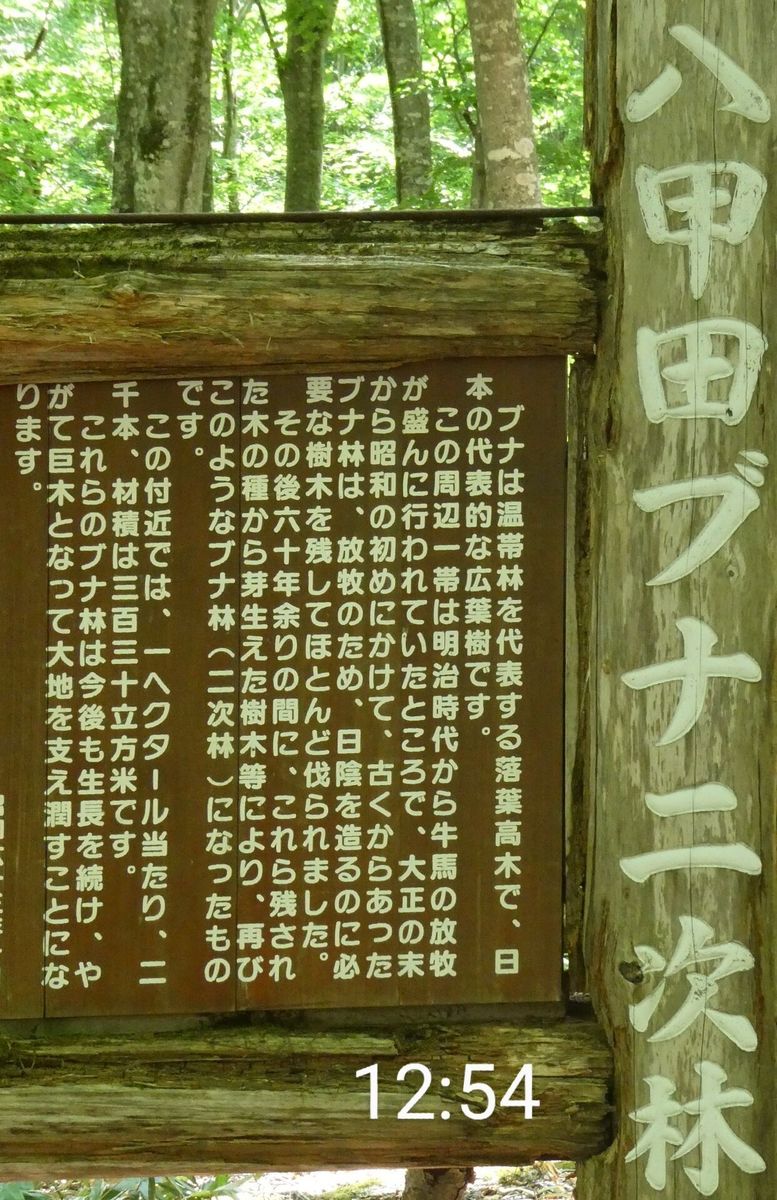 八甲田ブナ二次林
ブナは温帯林を代表する落葉高木で、日
本の代表的な広葉樹です。
この周辺一帯は明治時代から牛馬の放牧
が盛んに行われていたところで、大正の末
から昭和の初めにかけて、古くからあった
ブナ林は、放牧のため、日陰を造るのに必
要な樹木を残してほとんど伐られました。
その後六十年余りの間に、これら残され
た木の種から芽生えた樹木等により、再び
このようなブナ林(二次林)になったもの
です。
この付近では、一ヘクタール当たり、二
千本、材積は三百三十立方米です。
これらのブナ林は今後も生長を続け、や
がて巨木となって大地を支え潤すことにな
ります。
12:54